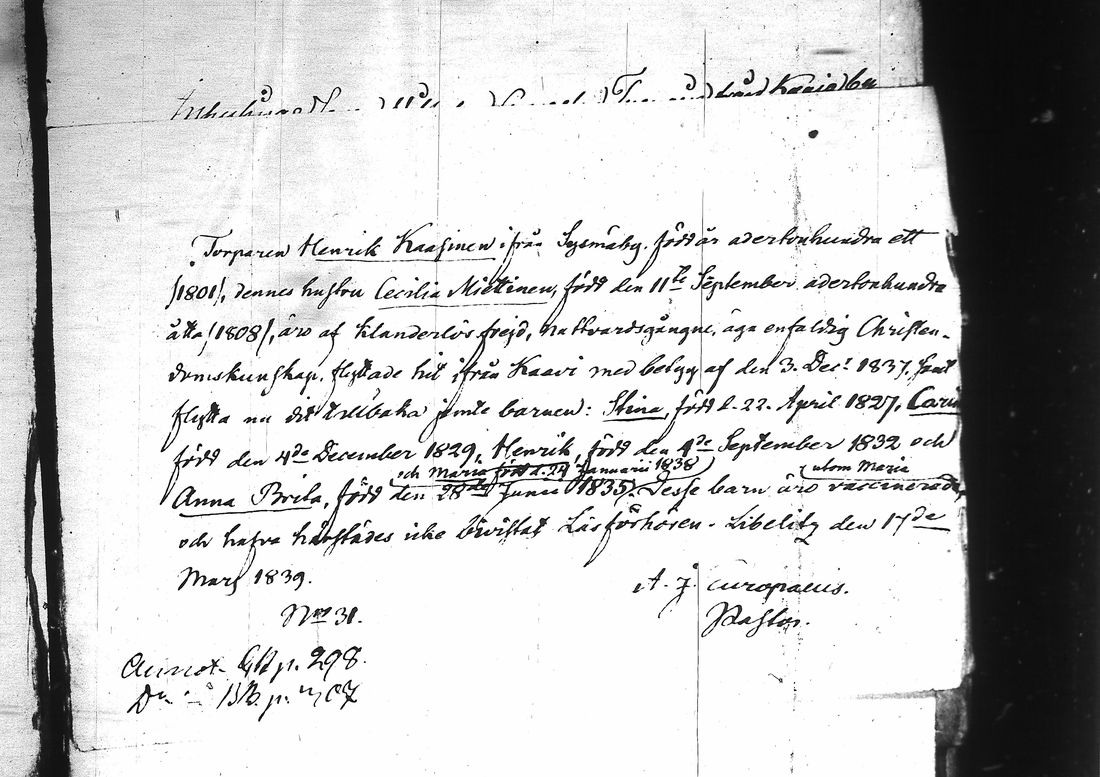 Torparen Henrik Kaasinen ifrån Sysmäby, född år adertonhundra ett
/1801/, dennes hustru Cecilia Miettinen, född den 11te September adertonhundra
åtta /1808/, äro af klanderlös frejd, nattvardsgångne, äga enfaldig Christen-
domskunskap, flyttade hit ifrån Kaavi med betyg af den 3. Decr 1837, samt
flytta nu dit tillbaka jemte barnen: Stina, född d. 22. April 1827, Carin
född den 4de December 1829, Henrik, född den 4de September 1832 och
och Maria född d. 24 Januarii 1838 utom Maria
Anna Brita, född den 28de Junii 1835. Desse barn äro vaccinerade,
och hafva härstädes icke bivistat Läsförhören. Libelitz den 17de
Mars 1839.
A. J. Europaeus.
Nro 31.
Pastor.
Annot. p. 298.